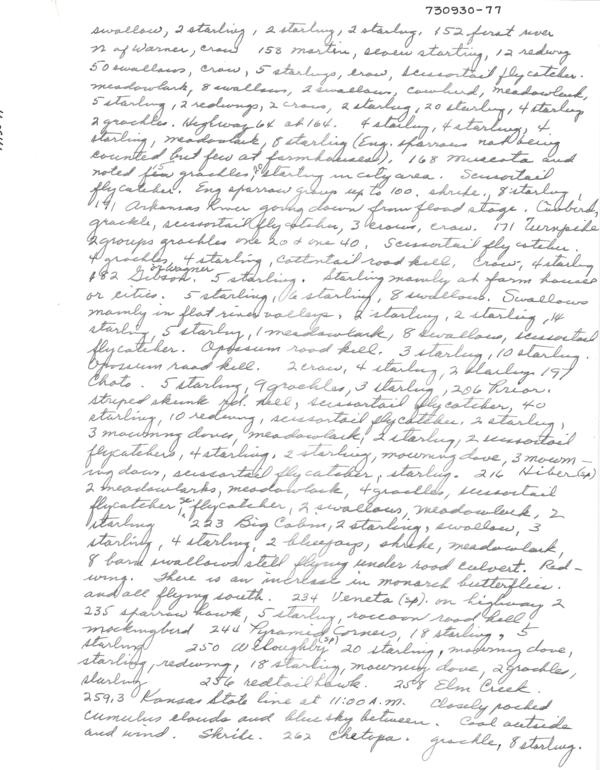 730930-77
swallow, 2 starling, 2 starling, 2 starling. 152 first river
N of Warner, crow 153 martin, seven starling, 12 redwing
50 swallows, crow, 5 starlings, crow, scissortail flycatcher.
meadowlark, 8 swallows, 2 swallows, cowbird, meadowlark,
5 starling, 2 redwings, 2 crows, 2 starling, 20 starling, 4 starling
2 grackles. Highway 64 at 164. 4 starling, 4 starling, 4
starling, meadowlark, 8 starling (Eng. sparrows not being
counted but few at farmhouses). 168 Muscota and
noted few grackles, starling in city area. Scissortail
flycatcher. Eng sparrow group up to 100. shrike, 8 starling,
191 Arkansas River going down from flood stage. Cowbirds,
grackle, scissortail flycatcher, 3 crows, crow. 171 Turnpike
2 groups grackles one 20 & one 40. Scissortail flycatcher.
4 grackles, 4 starling, cottontail road kill, crow, 4 starling
182 Gibson of Wagner. 5 starling. Starling mainly at farm houses
or cities. 5 starling, 6 starling, 8 swallows. Swallows
mainly in flat river valleys. 2 starling, 2 starling, 14
starling, 5 starling, 1 meadowlark, 8 swallows, scissortail
flycatcher. Opossum road kill. 3 starling, 10 starling.
Opossum road kill. 2 crow, 4 starling, 2 starling. 197
Choto. 5 starling, 9 grackles, 3 starling, 206 Prior.
striped skunk rd. kill, scissortail flycatcher, 40
starling, 10 redwing, scissortail flycatcher, 2 starling,
3 mourning doves, meadowlark, 2 starling, 2 scissortail
flycatchers, 4 starling, 2 starling, mourning dove, 3 mourn-
ing doves, scissortail flycatcher, starling. 216 Hiber (sp)
2 meadowlarks, meadowlark, 4 grackles, scissortail
flycatcher, flycatcher, 2 swallows, meadowlark, 2
starling 223 Big Cabin, 2 starling, swallow, 3
starling, 4 starling. 2 bluejays, shrike, meadowlark,
8 barn swallows still flying under road culvert. Red-
wing. There is an increase in monarch butterflies.
and all flying south. 234 Veneta (sp). on highway 2
235 sparrow hawk, 5 starling, raccoon road kill
mockingbird 244 Pyramid Corners, 18 starling, 5
starling 250 Welloughby (sp) 20 starling, mourning dove,
starling, redwing, 18 starling, mourning dove, 2 grackles,
starling 256 redtail hawk. 258 Elm Creek.
259.3 Kansas State line at 11:00 A.M. Closely packed
cumulus clouds and blue sky between. Cool outside
and wind. Shrike. 262 Chetopa. grackle, 8 starling.